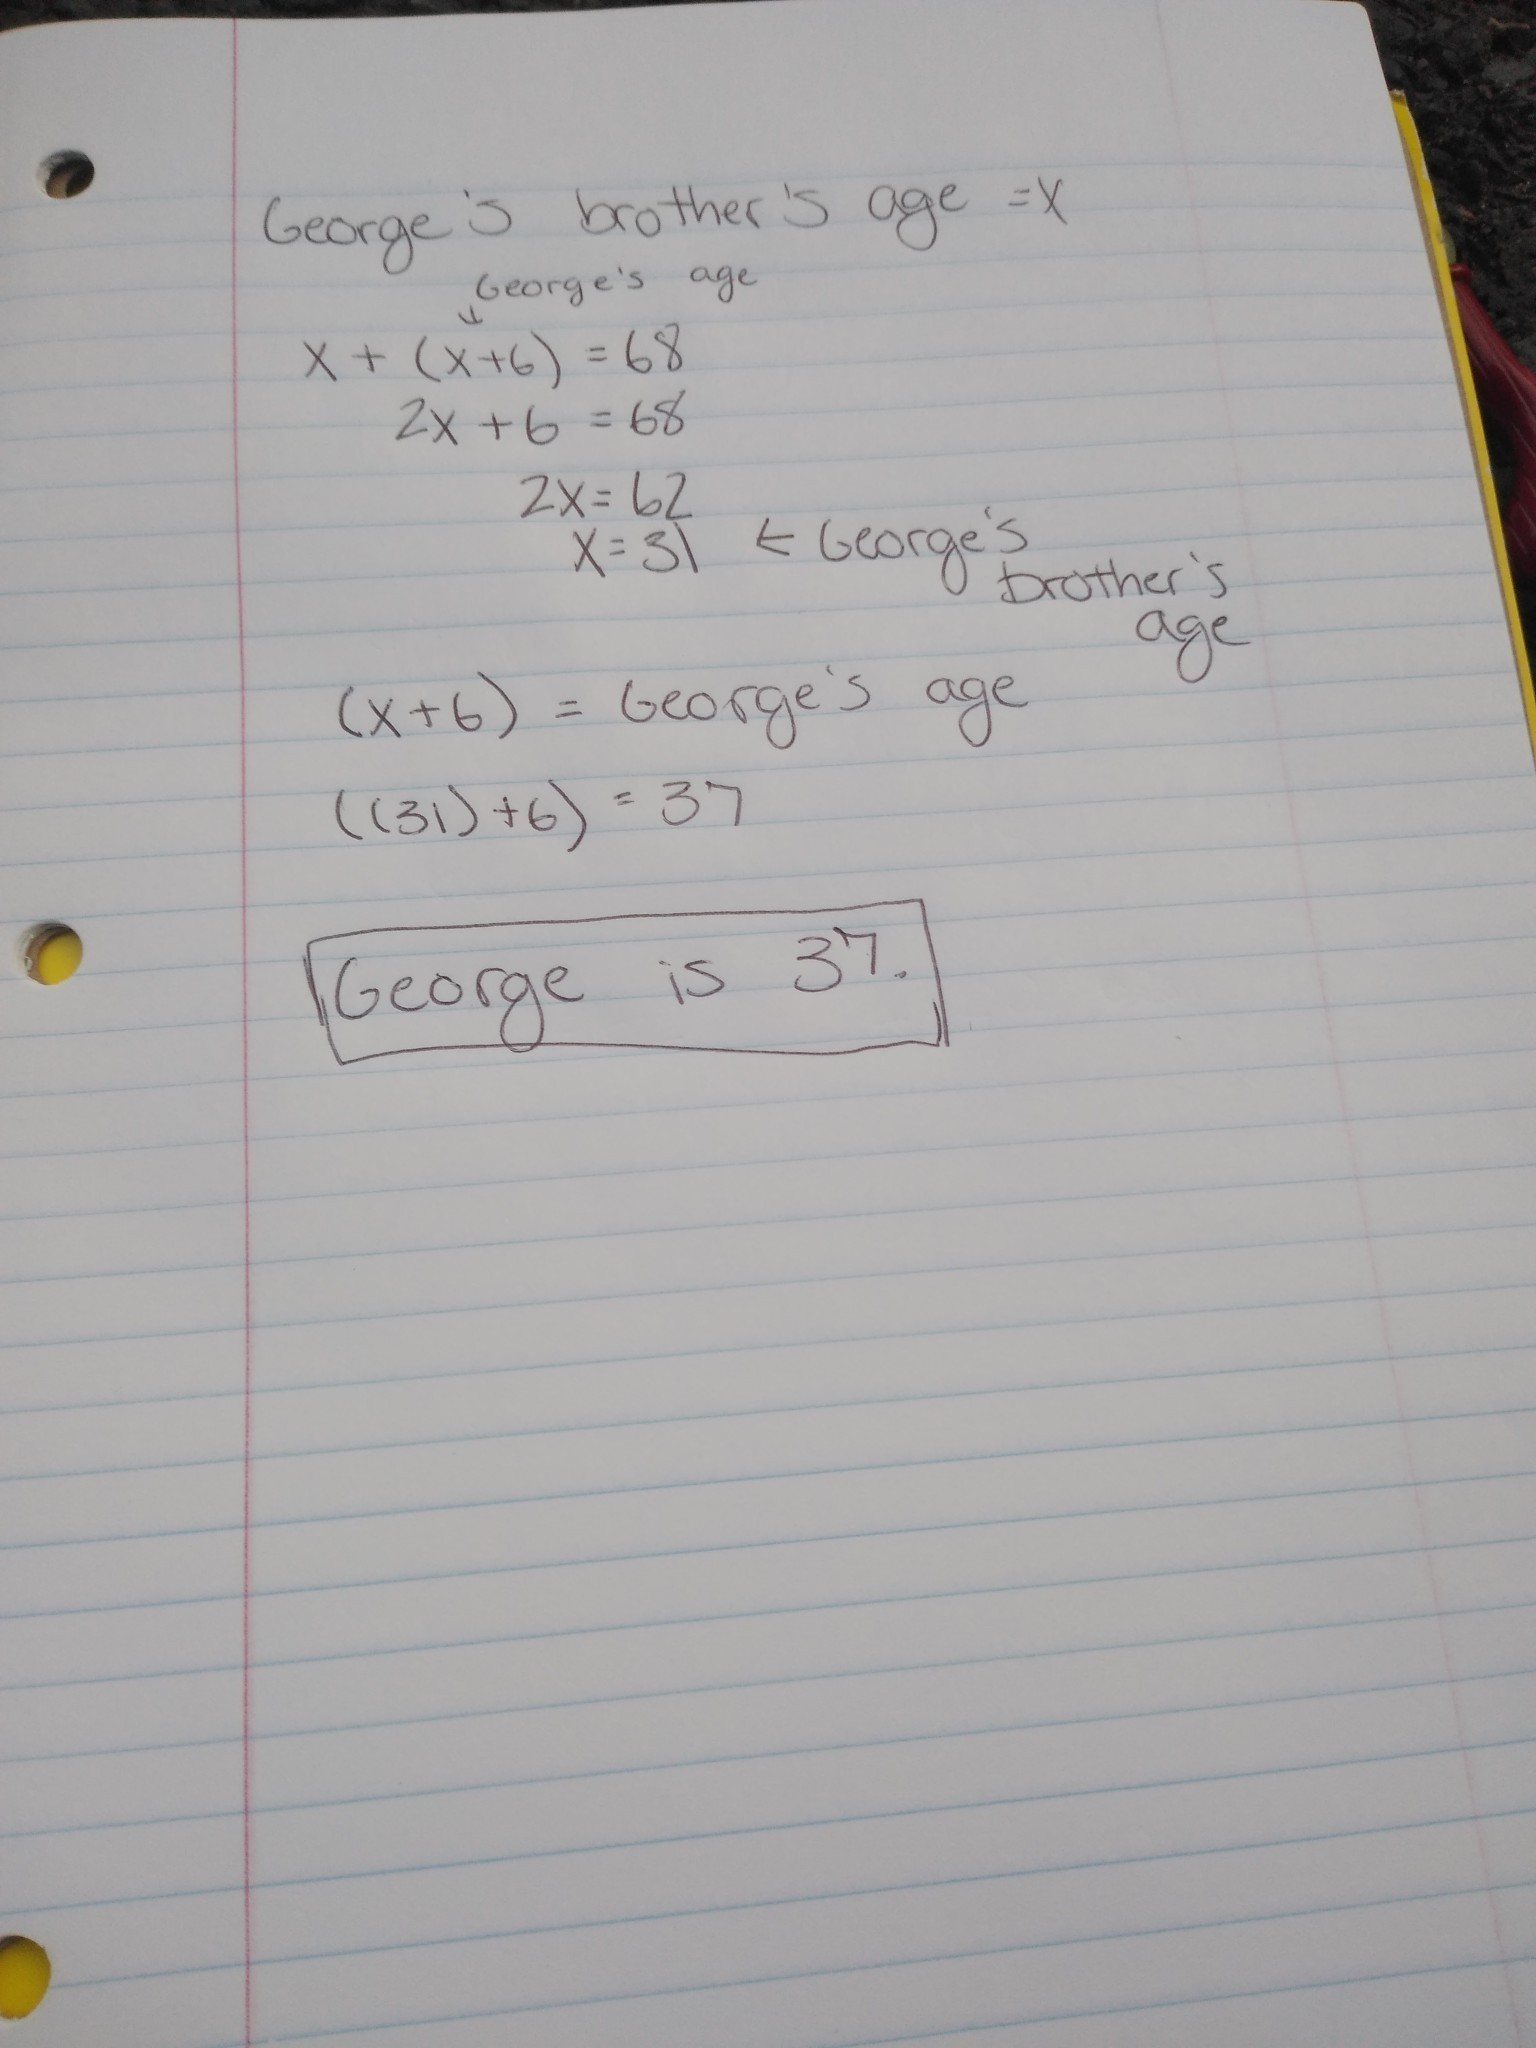 George's brother's age = x
George's age
↓
x + (x+6) = 68
2x + 6 = 68
2x = 62
x = 31 ← George's
brother's
age
(x+6) = George's age
((31)+6) = 37
George is 37.